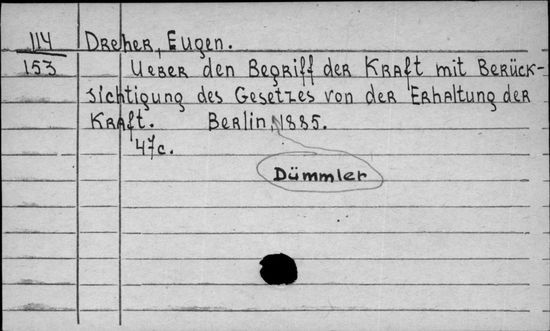 114 Dreher, Eugen.
153 Ueber den Begriff der Kraft mit Berück-
sichtigung des Gesetzes von der Erhaltung der
Kraft. Berlin, 1885.
47c.
Dümmler